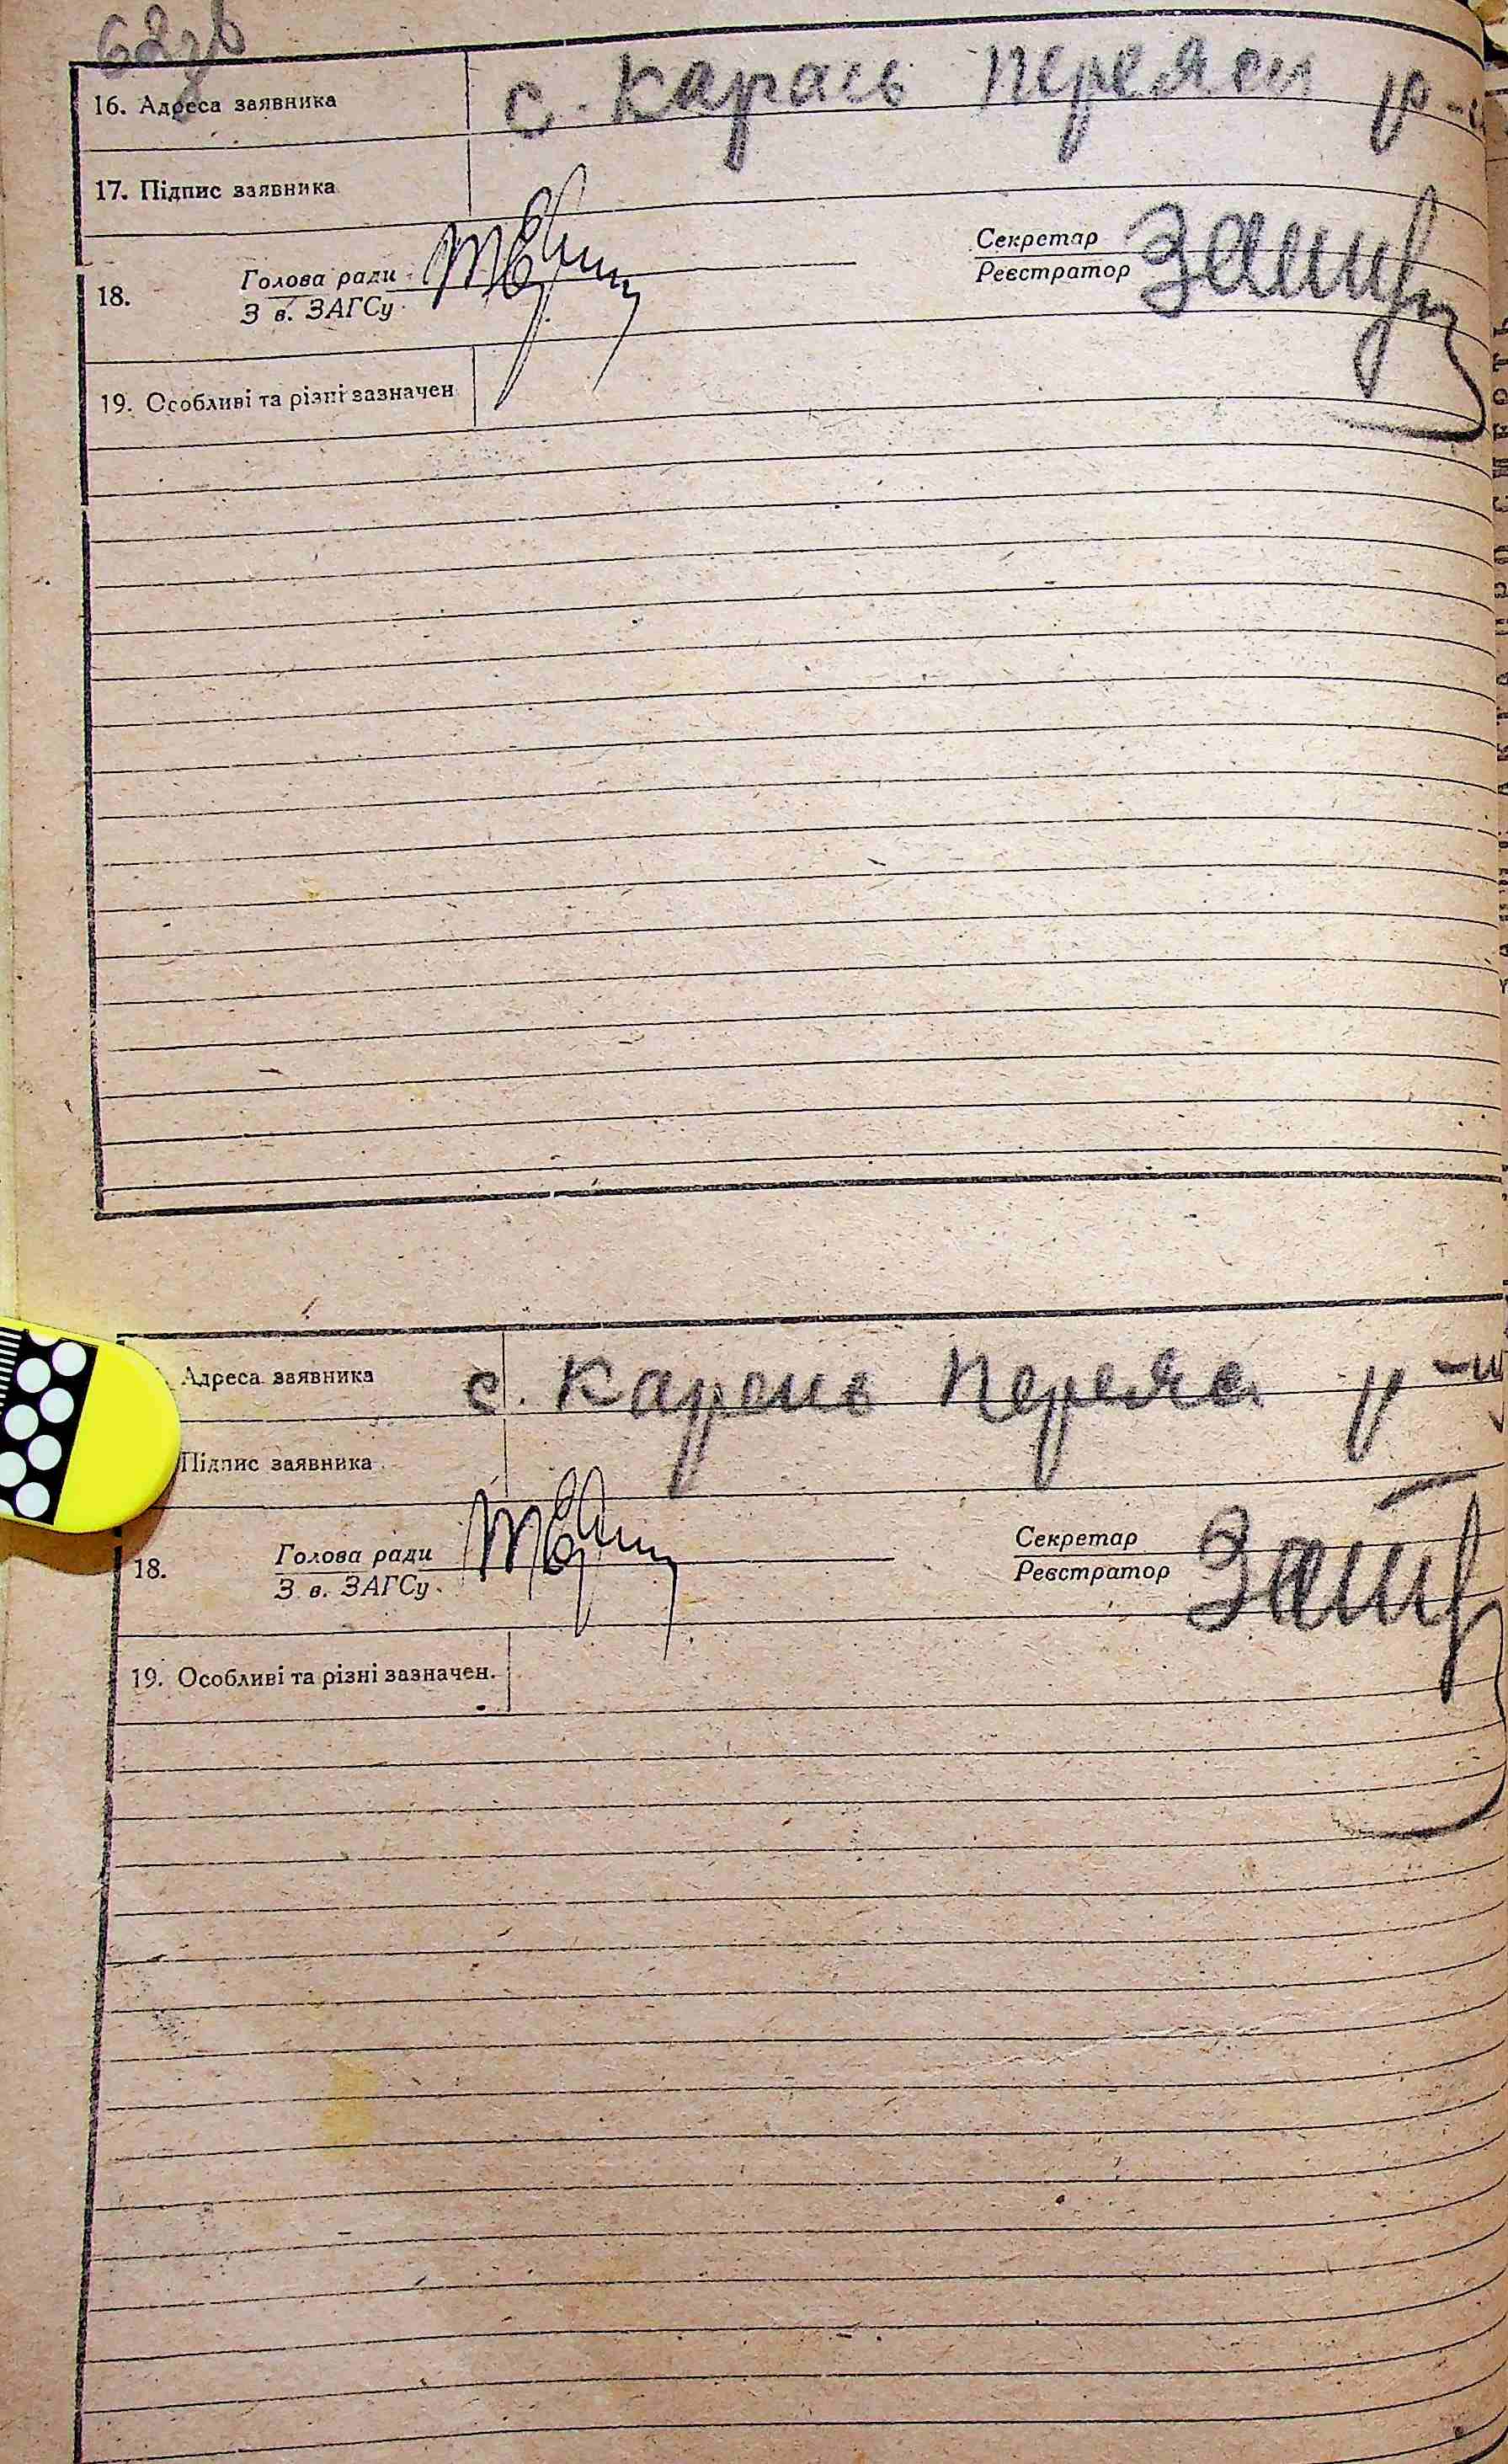 62зв
16. Адреса заявника с. Карань Переясл р-н
17. Підпис заявника
Секретар
18. Голова ради
Реєстратор
З в. ЗАГСу
19. Особливі та різні зазначен
Адреса заявника с. Карань Перея р-н
Підпис заявника
Секретар
18. Голова ради
Реєстратор
З в. ЗАГСу
19. Особливі та різні зазначен.